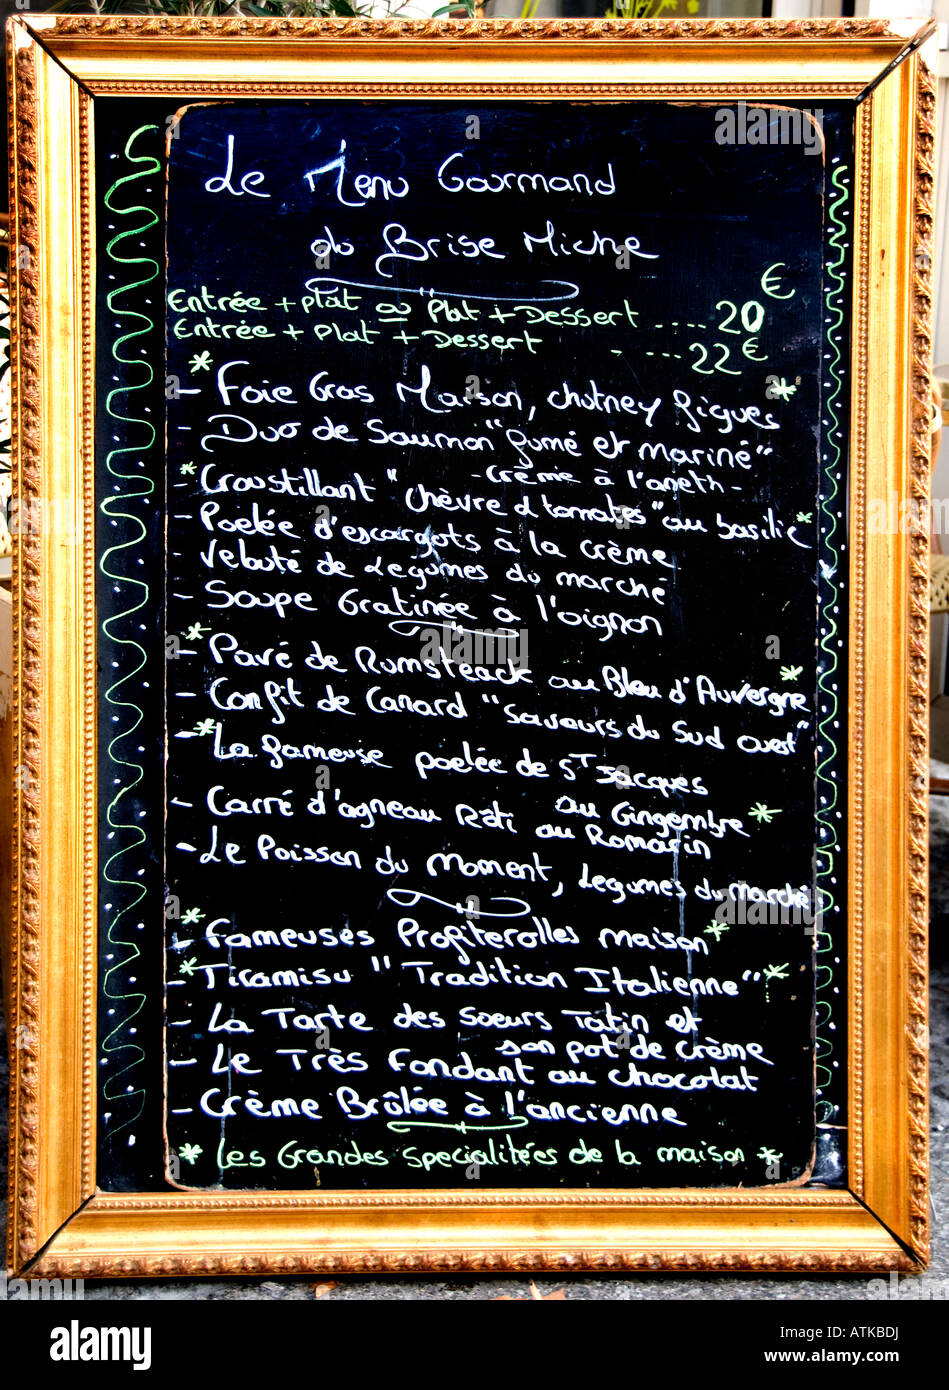 Le Menu Gourmand
du Brise Miche
Entrée + plât ou Plat + Dessert .... 20 €
Entrée + Plat + Dessert - .... 22 €
* - Foie Gras Maison, chutney figues *
- Duo de Saumon "fumé et mariné"
- crème à l'aneth -
* - Croustillant "chèvre et tomates" au basilic *
- Poelée d'escargots à la crème
- Velouté de Legumes du marché
- Soupe Gratinée à l'oignon
* - Pavé de Rumsteack au Bleu d'Auvergne *
- Confit de Canard "Saveurs du Sud ouest"
- * La fameuse poelée de ST Jacques
au Gingembre *
- Carré d'agneau Rôti au Romarin
- Le Poisson du Moment, Legumes du marché
* - Fameuses Profiterolles maison *
* - Tiramisu "Tradition Italienne" *
- La Tarte des Soeurs Tatin et
son pot de crème
- Le Très Fondant au chocolat
- Crème Brûlée à l'ancienne
* Les Grandes Specialitées de la maison *
alamy
Image ID: ATKBDJ
www.alamy.com